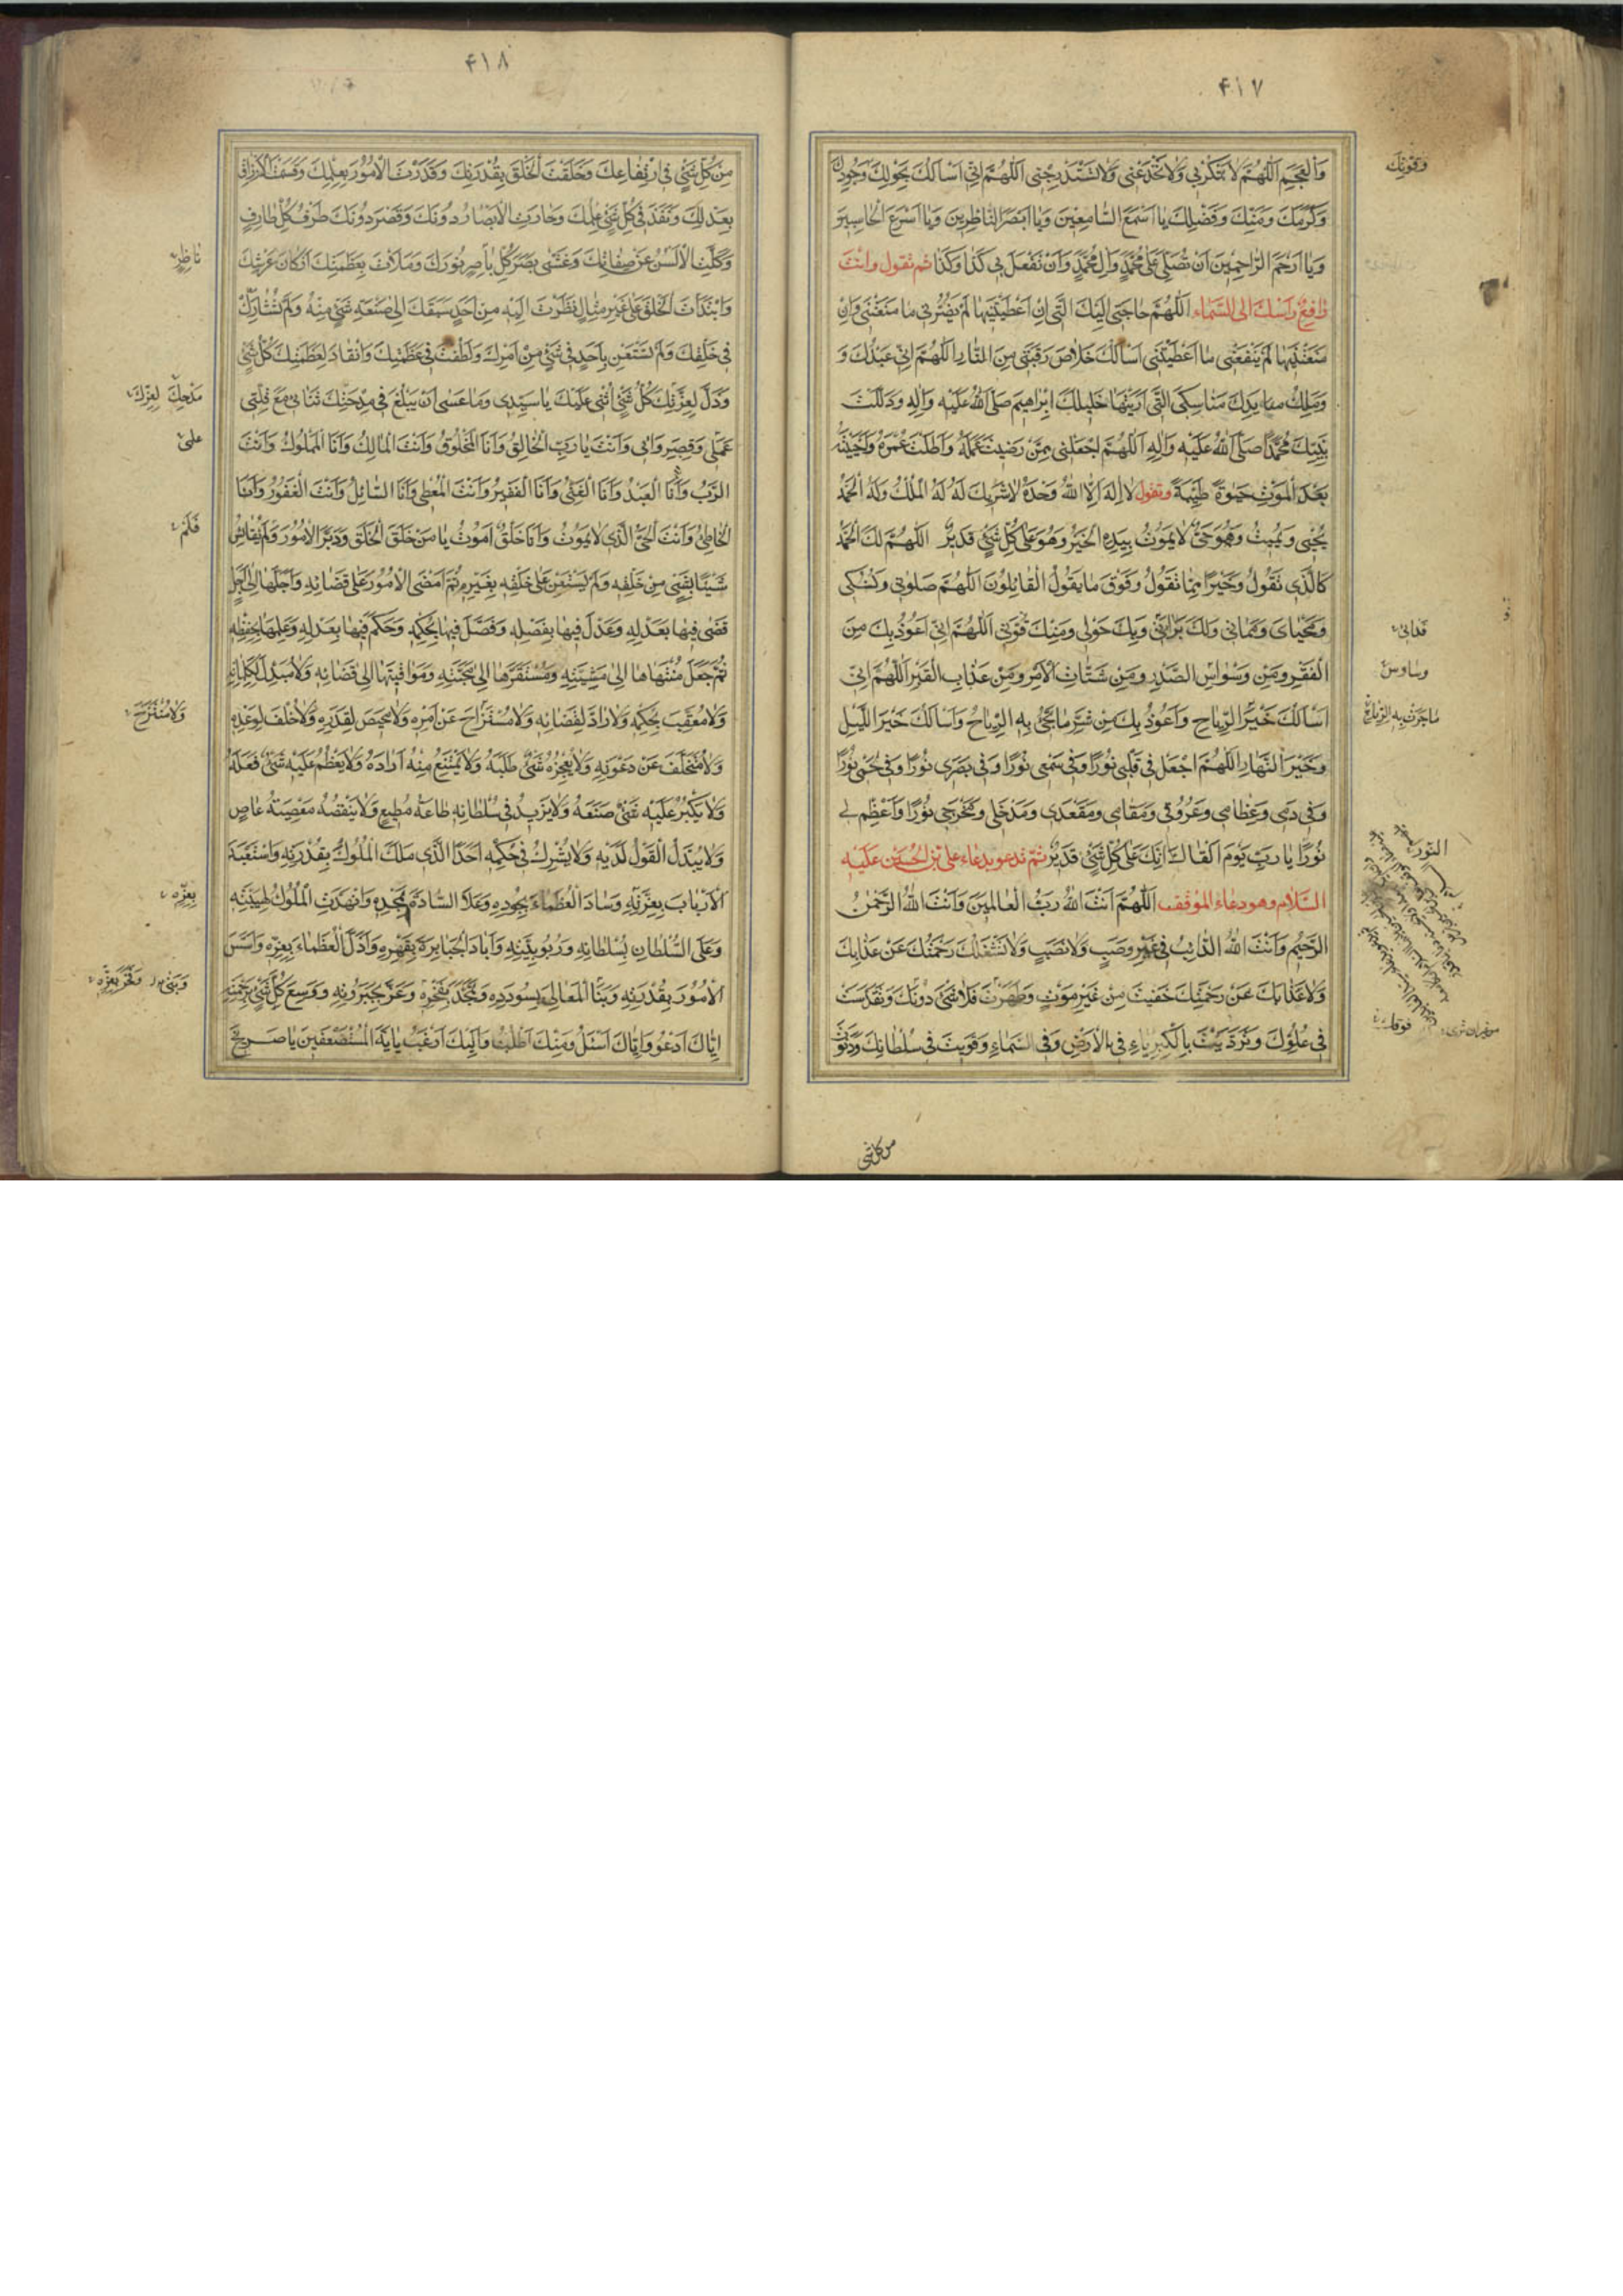 ۴۱۷
وَالْعَجَمِ اَللّٰهُمَّ لاٰ تَمْكُرْ بى وَلاٰ تَخْدَعْنى وَلاٰ تَسْتَدْرِجْنى اَللّٰهُمَّ اِنّى اَسْاَلُكَ بِحَوْلِكَ وَجُودِكَ
وَكَرَمِكَ وَمَنِّكَ وَفَضْلِكَ يٰا اَسْمَعَ السّٰامِعينَ وَيٰا اَبْصَرَ النّٰاظِرينَ وَيٰا اَسْرَعَ الْحٰاسِبينَ
وَيٰا اَرْحَمَ الرّٰاحِمينَ اَنْ تُصَلِّىَ عَلىٰ مُحَمَّدٍ وَاٰلِ مُحَمَّدٍ وَاَنْ تَفْعَلَ بى كَذٰا وَكَذٰا ثم تقول وانت
رٰافِعٌ رَاْسَكَ الى السَّمٰاء اَللّٰهُمَّ حٰاجَتى اِلَيْكَ الَّتى اِنْ اَعْطَيْتَنيهٰا لَمْ يَضُرَّنى مٰا مَنَعْتَنى وَاِنْ
مَنَعْتَنيهٰا لَمْ يَنْفَعْنى مٰا اَعْطَيْتَنى اَسْاَلُكَ خَلاٰصَ رَقَبَتى مِنَ النّٰارِ اَللّٰهُمَّ اِنّى عَبْدُكَ وَ
وَمِلْكُ يَدِكَ مَنٰاسِكِىَ الَّتى اَرَيْتَهٰا خَليلَكَ اِبْرٰاهيمَ صَلَّى اللّٰهُ عَلَيْهِ وَاٰلِهِ وَدَلَلْتَ
نَبِيَّكَ مُحَمَّدًا صَلَّى اللّٰهُ عَلَيْهِ وَاٰلِهِ اَللّٰهُمَّ اجْعَلْنى مِمَّنْ رَضيتَ عَمَلَهُ وَاَطَلْتَ عُمْرَهُ وَاَحْيَيْتَهُ
بَعْدَ الْمَوْتِ حَيٰوةً طَيِّبَةً وتقول لاٰ اِلٰهَ اِلاَّ اللّٰهُ وَحْدَهُ لاٰ شَريكَ لَهُ لَهُ الْمُلْكُ وَلَهُ الْحَمْدُ
يُحْيى وَيُميتُ وَهُوَ حَىٌّ لاٰ يَمُوتُ بِيَدِهِ الْخَيْرُ وَهُوَ عَلىٰ كُلِّ شَىْءٍ قَديرٌ اَللّٰهُمَّ لَكَ الْحَمْدُ
كَالَّذى تَقُولُ وَخَيْرًا مِمّٰا نَقُولُ وَفَوْقَ مٰا يَقُولُ الْقٰائِلُونَ اَللّٰهُمَّ صَلوٰتى وَنُسُكى
وَمَحْيٰاىَ وَمَمٰاتى وَلَكَ بَرٰائَتى وَبِكَ حَوْلى وَمِنْكَ قُوَّتى اَللّٰهُمَّ اِنّى اَعُوذُ بِكَ مِنَ
الْفَقْرِ وَمِنْ وَسْوٰاسِ الصَّدْرِ وَمِنْ شَتٰاتِ الْاَمْرِ وَمِنْ عَذٰابِ الْقَبْرِ اَللّٰهُمَّ اِنّى
اَسْاَلُكَ خَيْرَ الرِّيٰاحِ وَاَعُوذُ بِكَ مِنْ شَرِّ مٰا يَجىءُ بِهِ الرِّيٰاحُ وَاَسْاَلُكَ خَيْرَ اللَّيْلِ
وَخَيْرَ النَّهٰارِ اَللّٰهُمَّ اجْعَلْ فى قَلْبى نُورًا وَفى سَمْعى نُورًا وَفى بَصَرى نُورًا وَفى لَحْمى نُورًا
وَفى دَمى وَعِظٰامى وَعُرُوقى وَمَقٰامى وَمَقْعَدى وَمَدْخَلى وَمَخْرَجى نُورًا وَاَعْظِمْ لى
نُورًا يٰا رَبِّ يَوْمَ اَلْقٰاكَ اِنَّكَ عَلىٰ كُلِّ شَىْءٍ قَديرٌ ثمّ تدعو بدعاء على بن الحسين عليه
السَّلاٰم وهو دعاء الموقف اَللّٰهُمَّ اَنْتَ اللّٰهُ رَبُّ الْعٰالَمينَ وَاَنْتَ اللّٰهُ الرَّحْمٰنُ
الرَّحيمُ وَاَنْتَ اللّٰهُ الدّٰائِبُ فى غَيْرِ وَصَبٍ وَلاٰ نَصَبٍ وَلاٰ تَشْغَلُكَ رَحْمَتُكَ عَنْ عَذٰابِكَ
وَلاٰ عَذٰابُكَ عَنْ رَحْمَتِكَ خَفيتَ مِنْ غَيْرِ مَوْتٍ وَظَهَرْتَ فَلاٰ شَىْءَ دُونَكَ وَتَقَدَّسْتَ
فى عُلُوِّكَ وَتَرَدَّيْتَ بِالْكِبْرِيٰاءِ فى الْاَرْضِ وَفى السَّمٰاءِ وَقَويتَ فى سُلْطٰانِكَ وَدَنَوْتَ
وَقُوَّتِكَ
وساوس
مٰا جَرَتْ بِهِ الرِّيٰاحُ
النور
من كل شى
۴۱۸
مِنْ كُلِّ شَىْءٍ فى ارْتِفٰاعِكَ وَخَلَقْتَ الْخَلْقَ بِقُدْرَتِكَ وَقَدَّرْتَ الْاُمُورَ بِعِلْمِكَ وَقَسَمْتَ الْاَرْزٰاقَ
بِعَدْلِكَ وَنَفَذَ فى كُلِّ شَىْءٍ عِلْمُكَ وَحٰارَتِ الْاَبْصٰارُ دُونَكَ وَقَصُرَ دُونَكَ طَرْفُ كُلِّ طٰارِفٍ
وَكَلَّتِ الْاَلْسُنُ عَنْ صِفٰاتِكَ وَغَشِىَ بَصَرَ كُلِّ بٰاصِرٍ نُورُكَ وَمَلَأْتَ بِعَظَمَتِكَ اَرْكٰانَ عَرْشِكَ
وَابْتَدَاْتَ الْخَلْقَ عَلىٰ غَيْرِ مِثٰالٍ نَظَرْتَ اِلَيْهِ مِنْ اَحَدٍ سَبَقَكَ اِلىٰ صَنْعَةِ شَىْءٍ مِنْهُ وَلَمْ تُشٰارَكْ
فى خَلْقِكَ وَلَمْ تَسْتَعِنْ بِاَحَدٍ فى شَىْءٍ مِنْ اَمْرِكَ وَلَطُفْتَ فى عَظَمَتِكَ وَانْقٰادَ لِعَظَمَتِكَ كُلُّ شَىْءٍ
وَذَلَّ لِعِزَّتِكَ كُلُّ شَىْءٍ اُثْنى عَلَيْكَ يٰا سَيِّدى وَمٰا عَسىٰ اَنْ يَبْلُغَ فى مِدْحَتِكَ ثَنٰائى مَعَ قِلَّةِ
عَمَلى وَقِصَرِ رَأْيى وَاَنْتَ يٰا رَبِّ الْخٰالِقُ وَاَنَا الْمَخْلُوقُ وَاَنْتَ الْمٰالِكُ وَاَنَا الْمَمْلُوكُ وَاَنْتَ
الرَّبُّ وَاَنَا الْعَبْدُ وَاَنْتَ الْغَنِىُّ وَاَنَا الْفَقيرُ وَاَنْتَ الْمُعْطى وَاَنَا السّٰائِلُ وَاَنْتَ الْغَفُورُ وَاَنَا
الْخٰاطِئُ وَاَنْتَ الْحَىُّ الَّذى لاٰ يَمُوتُ وَاَنَا خَلْقٌ اَمُوتُ يٰا مَنْ خَلَقَ الْخَلْقَ وَدَبَّرَ الْاُمُورَ وَلَمْ يُقٰايِسْ
شَيْئًا بِشَىْءٍ مِنْ خَلْقِهِ وَلَمْ يَسْتَعِنْ عَلىٰ خَلْقِهِ بِغَيْرِهِ ثُمَّ اَمْضَى الْاُمُورَ عَلىٰ قَضٰائِهِ وَاَجَّلَهٰا اِلىٰ اَجَلٍ
قَضىٰ فيهٰا بِعَدْلِهِ وَعَدَلَ فيهٰا بِفَضْلِهِ وَفَصَّلَ فيهٰا بِحُكْمِهِ وَحَكَمَ فيهٰا بِعَدْلِهِ وَعَلِمَهٰا بِحِفْظِهِ
ثُمَّ جَعَلَ مُنْتَهٰاهٰا اِلىٰ مَشِيَّتِهِ وَمُسْتَقَرَّهٰا اِلىٰ مَحَبَّتِهِ وَمَوٰاقيتَهٰا اِلىٰ قَضٰائِهِ وَلاٰ مُبَدِّلَ لِكَلِمٰاتِهِ
وَلاٰ مُعَقِّبَ لِحُكْمِهِ وَلاٰ رٰادَّ لِقَضٰائِهِ وَلاٰ مُسْتَزٰاحَ عَنْ اَمْرِهِ وَلاٰ مَحيصَ لِقَدَرِهِ وَلاٰ خُلْفَ لِوَعْدِهِ
وَلاٰ مُتَخَلِّفَ عَنْ دَعْوَتِهِ وَلاٰ يُعْجِزُهُ شَىْءٌ طَلَبَهُ وَلاٰ يَمْتَنِعُ مِنْهُ اَرٰادَهُ وَلاٰ يَعْظُمُ عَلَيْهِ شَىْءٌ فَعَلَهُ
وَلاٰ يَكْبُرُ عَلَيْهِ شَىْءٌ صَنَعَهُ وَلاٰ يَزيدُ فى سُلْطٰانِهِ طٰاعَةُ مُطيعٍ وَلاٰ يَنْقُصُهُ مَعْصِيَةُ عٰاصٍ
وَلاٰ يُبَدَّلُ الْقَوْلُ لَدَيْهِ وَلاٰ يُشْرِكُ فى حُكْمِهِ اَحَدًا الَّذى مَلَكَ الْمُلُوكَ بِقُدْرَتِهِ وَاسْتَعْبَدَ
الْاَرْبٰابَ بِعِزَّتِهِ وَسٰادَ الْعُظَمٰاءَ بِجُودِهِ وَعَلاَ السّٰادَةَ بِمَجْدِهِ وَانْهَدَّتِ الْمُلُوكُ لِهَيْبَتِهِ
وَعَلَى السُّلْطٰانَ بِسُلْطٰانِهِ وَرُبُوبِيَّتِهِ وَاَبٰادَ الْجَبٰابِرَةَ بِقَهْرِهِ وَاَذَلَّ الْعُظَمٰاءَ بِعِزِّهِ وَاَسَّسَ
الْاُمُورَ بِقُدْرَتِهِ وَبَنَا الْمَعٰالِىَ بِسُودَدِهِ وَتَمَجَّدَ بِفَخْرِهِ وَعَزَّ بِجَبَرُوتِهِ وَوَسِعَ كُلَّ شَىْءٍ بِرَحْمَتِهِ
اِيّٰاكَ اَدْعُو وَاِيّٰاكَ اَسْئَلُ وَمِنْكَ اَطْلُبُ وَاِلَيْكَ اَرْغَبُ يٰا غٰايَةَ الْمُسْتَضْعَفينَ يٰا صَريخَ
نٰاظِرٍ
مَدْحِكَ لِعِزِّكَ
فَلَمْ
بِعِزِّهِ